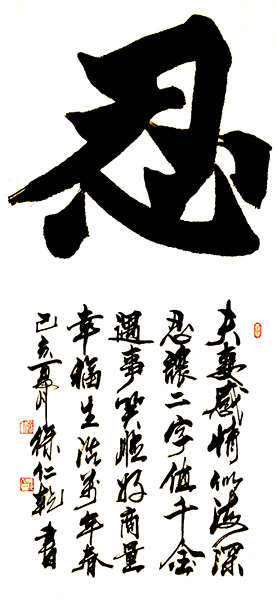 忍
夫妻感情似海深
忍讓二字值千金
遇事冷臉好商量
幸福生活萬年春
己亥夏月 徐仁乾書